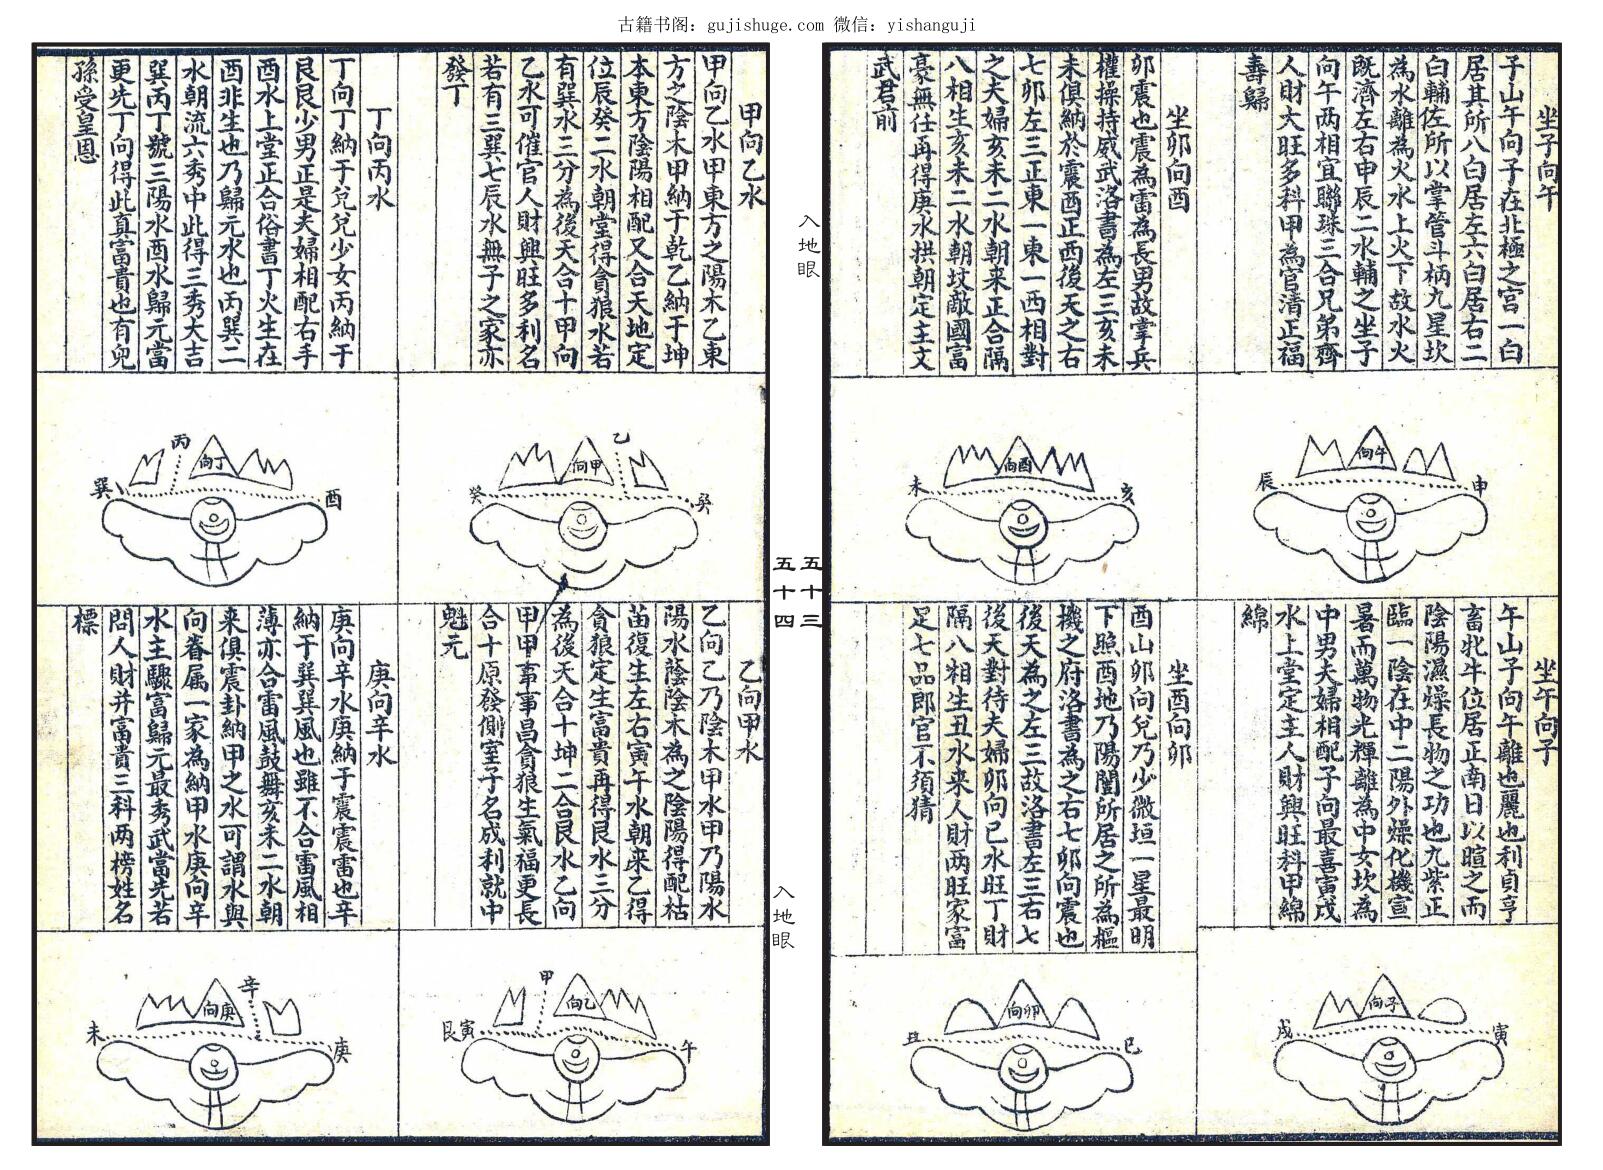 古籍书阁：gujishuge.com 微信：yishanguji
坐子向午
子山午向子在北極之宫一白
居其所八白居左六白居右二
白輔佐所以掌管斗柄九星坎
為水離為火水上火下故水火
既濟左右申辰二水輔之坐子
向午两相宜聯珠三合兄弟齊
人財大旺多科甲為官清正福
壽歸
坐卯向酉
卯震也震為雷為長男故掌兵
權操持威武洛書為左三亥未
未俱納於震酉正西後天之右
七卯左三正東一東一西相對
之夫婦亥未二水朝来正合隔
八相生亥未二水朝坟敵國富
豪無任再得庚水拱朝定主文
武君前
午向
辰
申
酉向
未
亥
坐午向子
午山子向午離也麗也利貞亨
畜牝牛位居正南日以暄之而
陰陽濕燥長物之功也九紫正
臨一陰在中二陽外燥化機宣
暑而萬物光輝離為中女坎為
中男夫婦相配子向最喜寅戌
水上堂定主人財興旺科甲綿
綿
坐酉向卯
酉山卯向兌乃少微垣一星最明
下照酉地乃陽闔所居之所為樞
機之府洛書為之右七卯向震也
後天為之左三故洛書左三右七
後天對待夫婦卯向巳水旺丁財
隔八相生丑水来人財两旺家富
足七品郎官不須猜
子向
戌
寅
卯向
丑
巳
入地眼
五十三
五十四
入地眼
甲向乙水
甲向乙水甲東方之陽木乙東
方之陰木甲納于乾乙納于坤
本東方陰陽相配又合天地定
位辰癸二水朝堂得貪狼水若
有巽水三分為後天合十甲向
乙水可催官人財興旺多利名
若有三巽七辰水無子之家亦
發丁
丁向丙水
丁向丁納于兌兌少女丙納于
艮艮少男正是夫婦相配右手
酉水上堂正合俗書丁火生在
酉非生也乃歸元水也丙巽二
水朝流六秀中此得三秀大吉
巽丙丁號三陽水酉水歸元當
更先丁向得此真富貴也有兒
孫受皇恩
甲向
乙
癸
癸
丁向
丙
巽
酉
乙向甲水
乙向乙乃陰木甲水甲乃陽水
陽水蔭陰木為之陰陽得配枯
苗復生左右寅午水朝来乙得
貪狼定生富貴再得艮水三分
為後天合十坤二合艮水乙向
甲甲事事昌貪狼生氣福更長
合十原發側室子名成利就中
魁元
庚向辛水
庚向辛水庚納于震震雷也辛
納于巽巽風也雖不合雷風相
薄亦合雷風鼓舞亥未二水朝
来俱震卦納甲之水可謂水與
向眷属一家為納甲水庚向辛
水主驟富歸元最秀武當先若
問人財并富貴三科两榜姓名
標
乙向
甲
艮寅
午
庚向
辛
未
庚